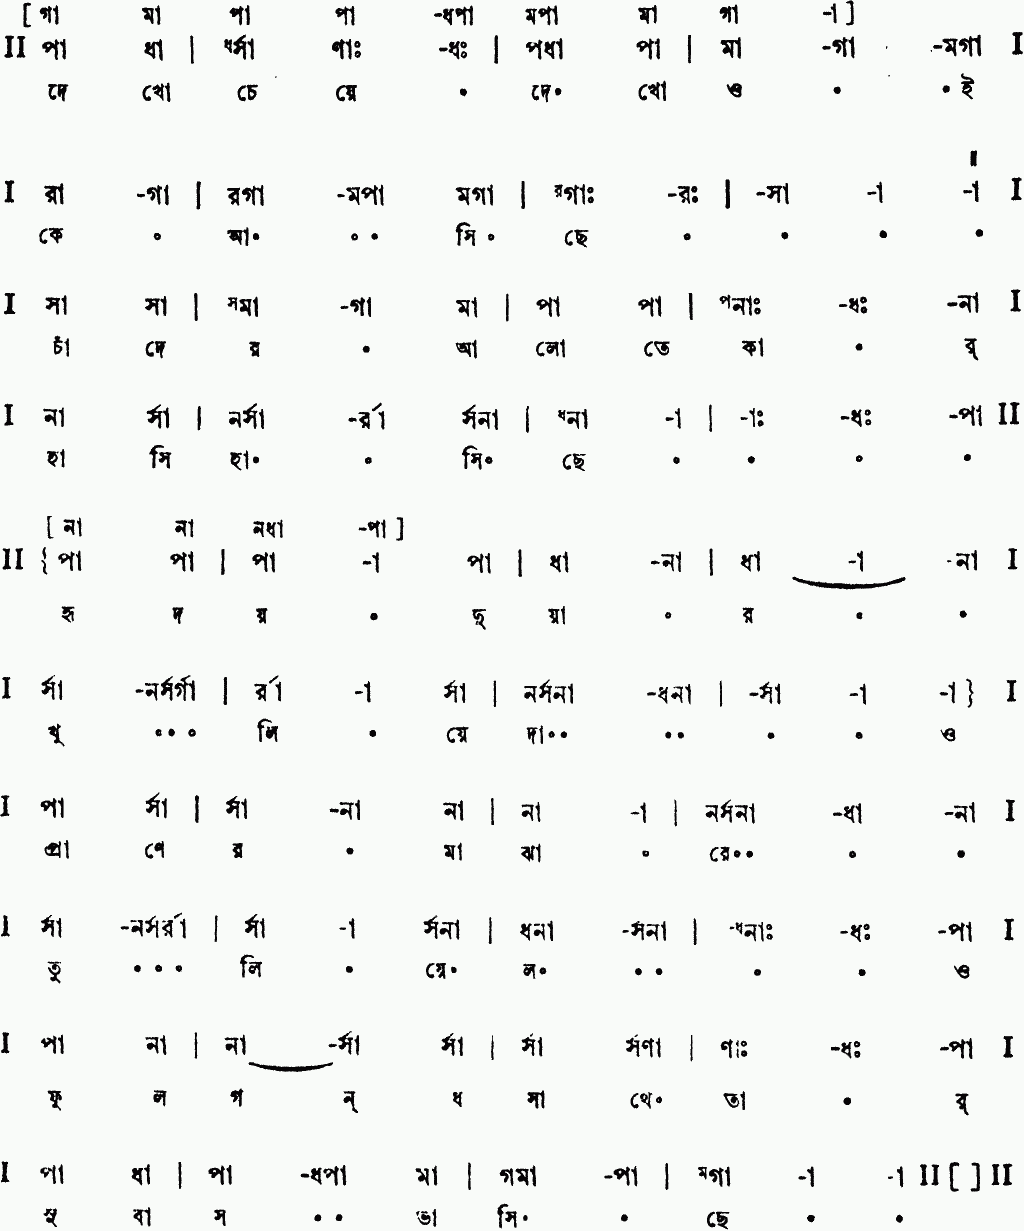 [ গা মা পা পা -ধপা মপা মা গা -া ]
II পা ধা | ধর্সা ণাঃ -ধঃ | পধা পা | মা -গা -মগা I
দে খো চে য়ে • দে• খো ও • •ই
I রা -গা | রগা -মপা মগা | রগাঃ -রঃ | -সা -া -া I
কে ০ আ• ০ • সি ০ ছে • • • •
I সা সা | সমা -গা মা | পা পা | পনাঃ -ধঃ -না I
চাঁ দে র • আ লো তে কা • র্
I না র্সা | নর্সা -র্রা র্সনা | ধনা -া | -াঃ -ধঃ -পা II
হা সি হা• • সি• ছে • • ০ •
[ না না নধা -পা ]
II { পা পা | পা -া পা | ধা -না | ধা -া -না I
হৃ দ য় • দু য়া ০ র • •
I র্সা -নর্সর্গা | র্রা -া র্সা | নর্সনা -ধনা | -র্সা -া -া } I
খু • • ০ লি • য়ে দা•• •• • • ও
I পা র্সা | র্সা -না না | না -া | নর্সনা -ধা -না I
প্রা ণে র • মা ঝা ০ রে•• ০ •
I র্সা -নর্সর্রা | র্সা -া র্সনা | ধনা -র্সনা | -ধনাঃ -ধঃ -পা I
তু • • • লি • য়ে• ল• • • • • ও
I পা না | না -র্সা র্সা | র্সা র্সণা | ণাঃ -ধঃ -পা I
ফু ল গ ন্ ধ সা থে• তা • র্
I পা ধা | পা -ধপা মা | গমা -পা | মগা -া -া II [ ] II
সু বা স • • ভা সি• • ছে • •